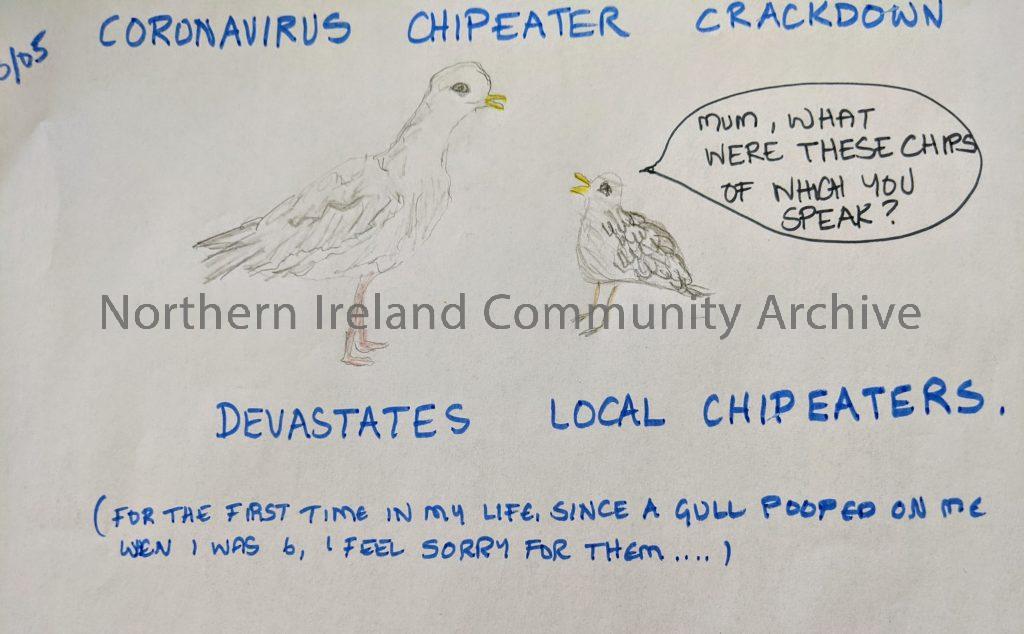 CORONAVIRUS CHIPEATER CRACKDOWN
MUM, WHAT
WERE THESE CHIPS
OF WHICH YOU
SPEAK?
Northern Ireland Community Archive
DEVASTATES LOCAL CHIPEATERS.
(FOR THE FIRST TIME IN MY LIFE, SINCE A GULL POOPED ON ME
WEN I WAS 6, I FEEL SORRY FOR THEM....)